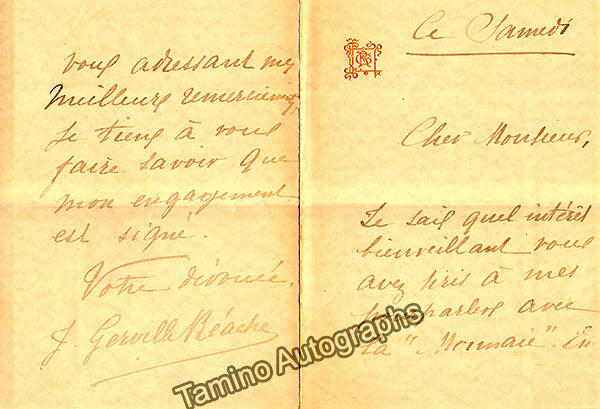 Ce Samedi
Cher Monsieur,
Je sais quel intérêt
bienveillant vous
avez pris à mes
pourparlers avec
la "Monnaie". En
vous adressant mes
meilleurs remerciements,
je tiens à vous
faire savoir que
mon engagement
est signé.
Votre dévouée,
J. Gerville Réache
Tamino Autographs